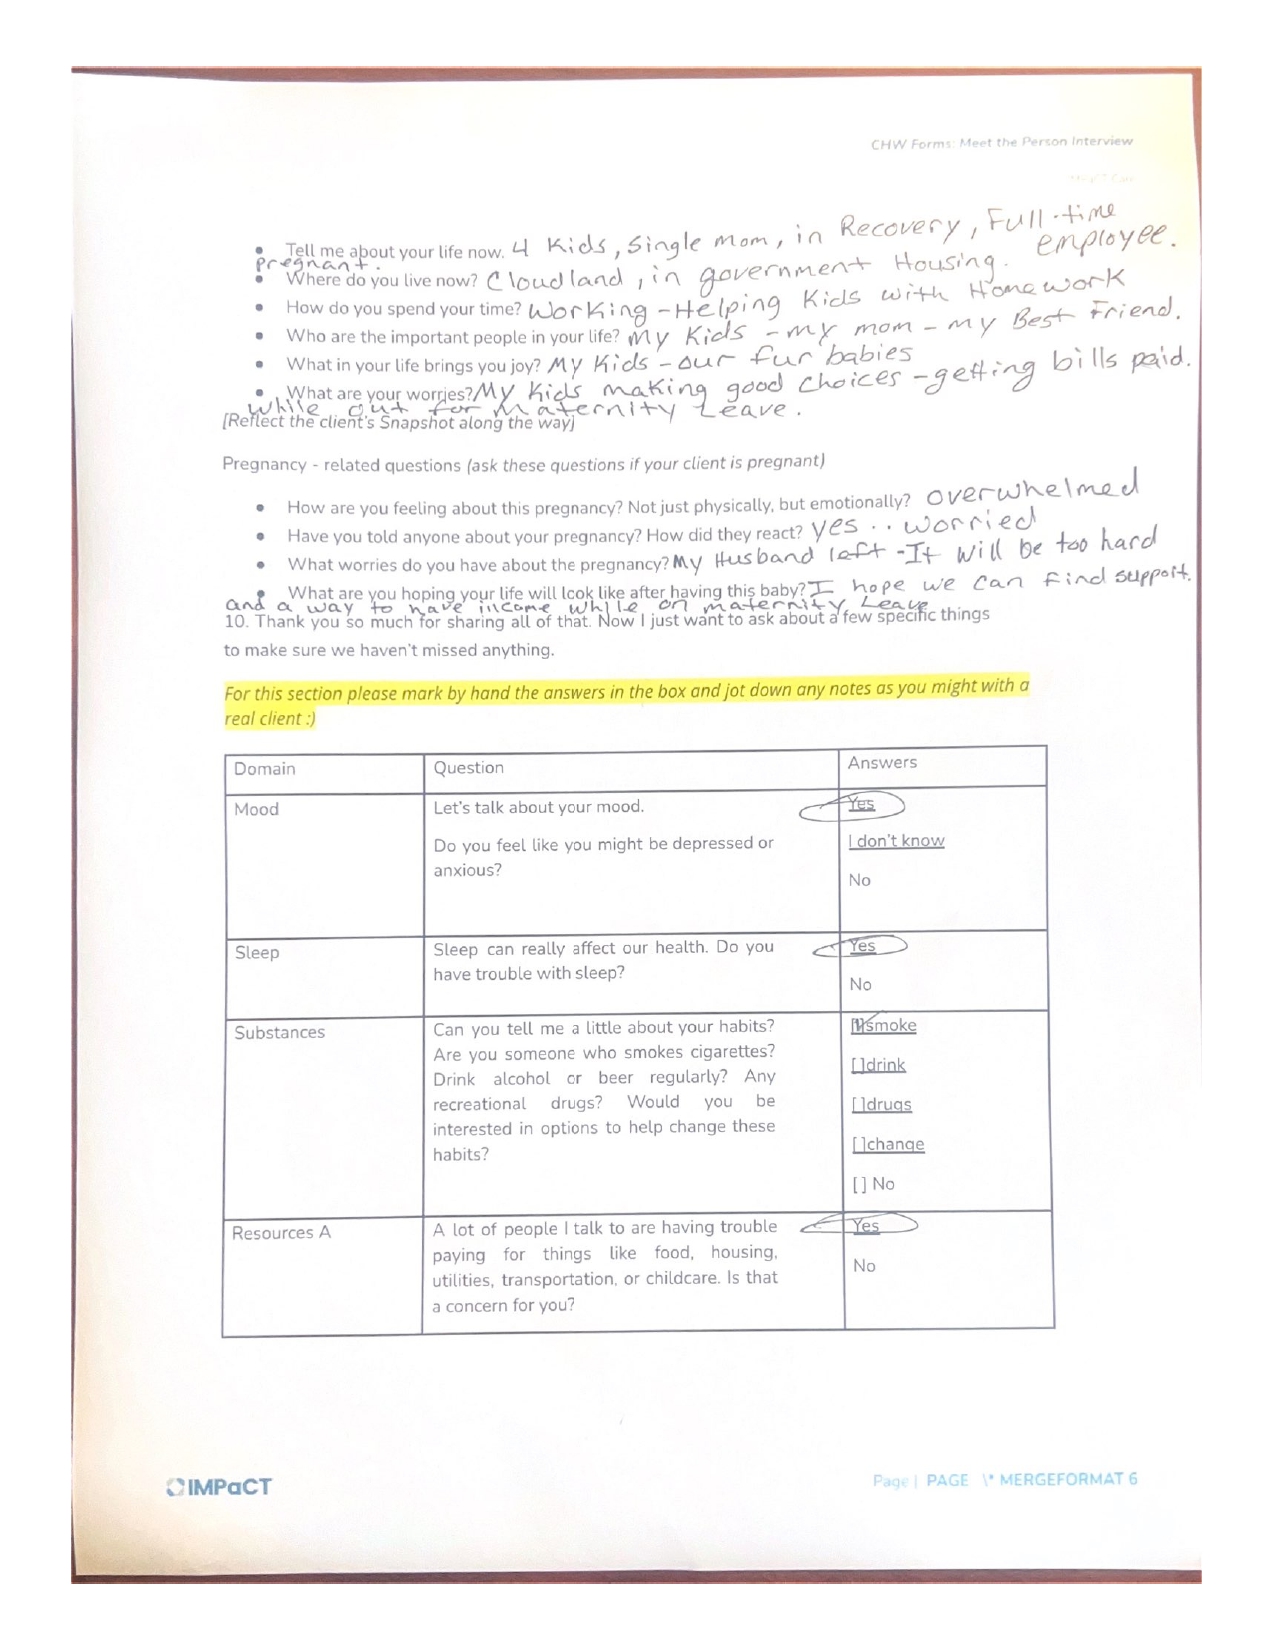 CHW Forms: Meet the Person Interview
• Tell me about your life now. 4 Kids, Single Mom, in Recovery, Full-time employee.
pregnant.
• Where do you live now? Cloudland, in government Housing.
• How do you spend your time? Working - Helping Kids with Homework
• Who are the important people in your life? My Kids - my mom - my Best Friend.
• What in your life brings you joy? My Kids - our fur babies
• What are your worries? My Kids making good choices - getting bills paid.
while out for Maternity Leave.
[Reflect the client's Snapshot along the way]
Pregnancy - related questions (ask these questions if your client is pregnant)
• How are you feeling about this pregnancy? Not just physically, but emotionally? overwhelmed
• Have you told anyone about your pregnancy? How did they react? yes.. worried
• What worries do you have about the pregnancy? My Husband left - It will be too hard
• What are you hoping your life will look like after having this baby? I hope we can find support.
and a way to have income while on maternity Leave
10. Thank you so much for sharing all of that. Now I just want to ask about a few specific things
to make sure we haven't missed anything.
For this section please mark by hand the answers in the box and jot down any notes as you might with a
real client :)
Domain Question Answers
Mood Let's talk about your mood. Yes
Do you feel like you might be depressed or I don't know
anxious?
No
Sleep Sleep can really affect our health. Do you Yes
have trouble with sleep?
No
Substances Can you tell me a little about your habits? [✓]smoke
Are you someone who smokes cigarettes?
Drink alcohol or beer regularly? Any []drink
recreational drugs? Would you be []drugs
interested in options to help change these
habits? []change
[] No
Resources A A lot of people I talk to are having trouble Yes
paying for things like food, housing,
utilities, transportation, or childcare. Is that No
a concern for you?
IMPaCT
Page | PAGE \* MERGEFORMAT 6